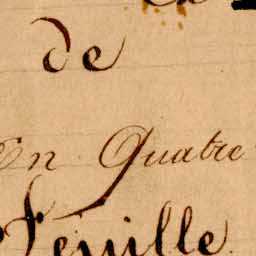 de
En Quatre
Feuille